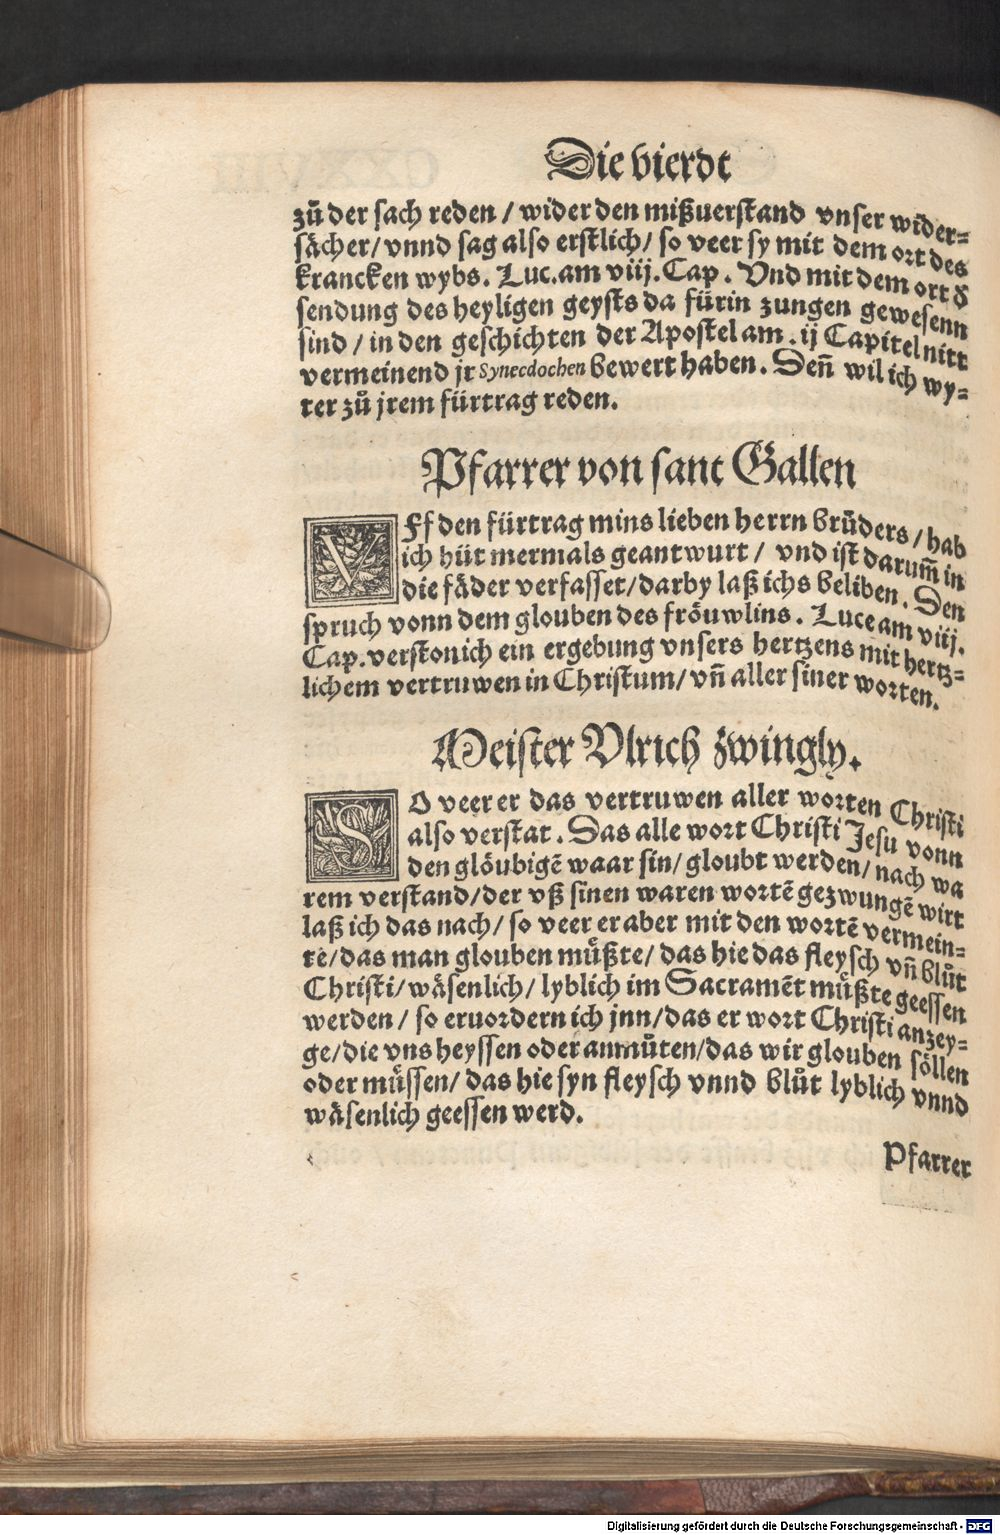 Die vierdt
zů der sach reden / wider den mißuerstand vnser wider⸗
sächer/ vnnd sag also erstlich/ so veer sy mit dem ort des
krancken wybs. Luc. am viij. Cap. Vnd mit dem ort d
sendung des heyligen geysts da fürin zungen gewesenn
sind / in den geschichten der Apostel am. ij Capitel nitt
vermeinend jr Synecdochen bewert haben. Deñ wil ich wy⸗
ter zů jrem fürtrag reden.
Pfarrer von sant Gallen
VFf den fürtrag mins lieben herrn brůders / hab
ich hüt mermals geantwurt / vnd ist darum̃ in
die fäder verfasset/ darby laß ichs beliben. Den
spruch vonn dem glouben des fröuwlins. Luce am viij.
Cap. verston ich ein ergebung vnsers hertzens mit hertz⸗
lichem vertruwen in Christum/ vñ aller siner worten.
Meister Vlrich zwingly.
SO veer er das vertruwen aller worten Christi
also verstat. Das alle wort Christi Jesu vonn
den glöubigẽ waar sin/ gloubt werden/ nach wa
rem verstand/ der vß sinen waren wortẽ gezwungẽ wirt
laß ich das nach/ so veer er aber mit den wortẽ vermein⸗
te/ das man glouben müßte/ das hie das fleysch vñ blůt
Christi/ wäsenlich/ lyblich im Sacramẽt müßte geessen
werden / so eruordern ich jnn/ das er wort Christi anzey⸗
ge/ die vns heyssen oder anmůten/ das wir glouben söllen
oder müssen/ das hie syn fleysch vnnd blůt lyblich vnnd
wäsenlich geessen werd.
Pfarrer
Digitalisierung gefördert durch die Deutsche Forschungsgemeinschaft - DFG